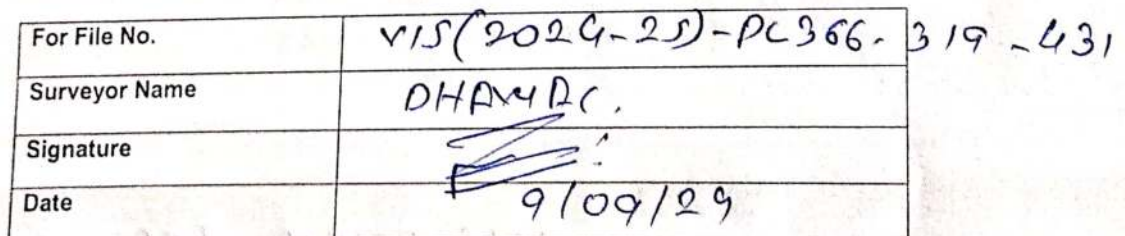 For File No. VIS(2024-25)-PL366-319-431
Surveyor Name DHAVAL.
Signature
Date 9/09/24